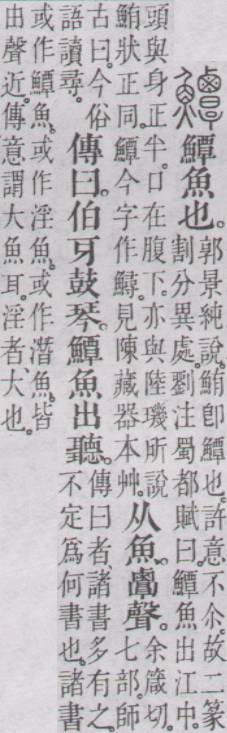 鱏魚也。
郭景純說。鮪卽鱏也。許意不尒。故二篆
割分異處。劉注蜀都賦曰。鱏魚出江中。
頭與身正半。口在腹下。亦與陸璣所說
鮪狀正同。鱏今字作鱘。見陳藏器本艸。
从魚。覃聲。
余箴切。
七部。師
古曰。今俗
語讀尋。
傳曰。伯牙鼓琴。鱏魚出聽。
傳曰者、諸書多有之。
不定爲何書也。諸書
或作鱏魚。或作淫魚。或作潛魚。皆
出聲近。傳意謂大魚耳。淫者、大也。